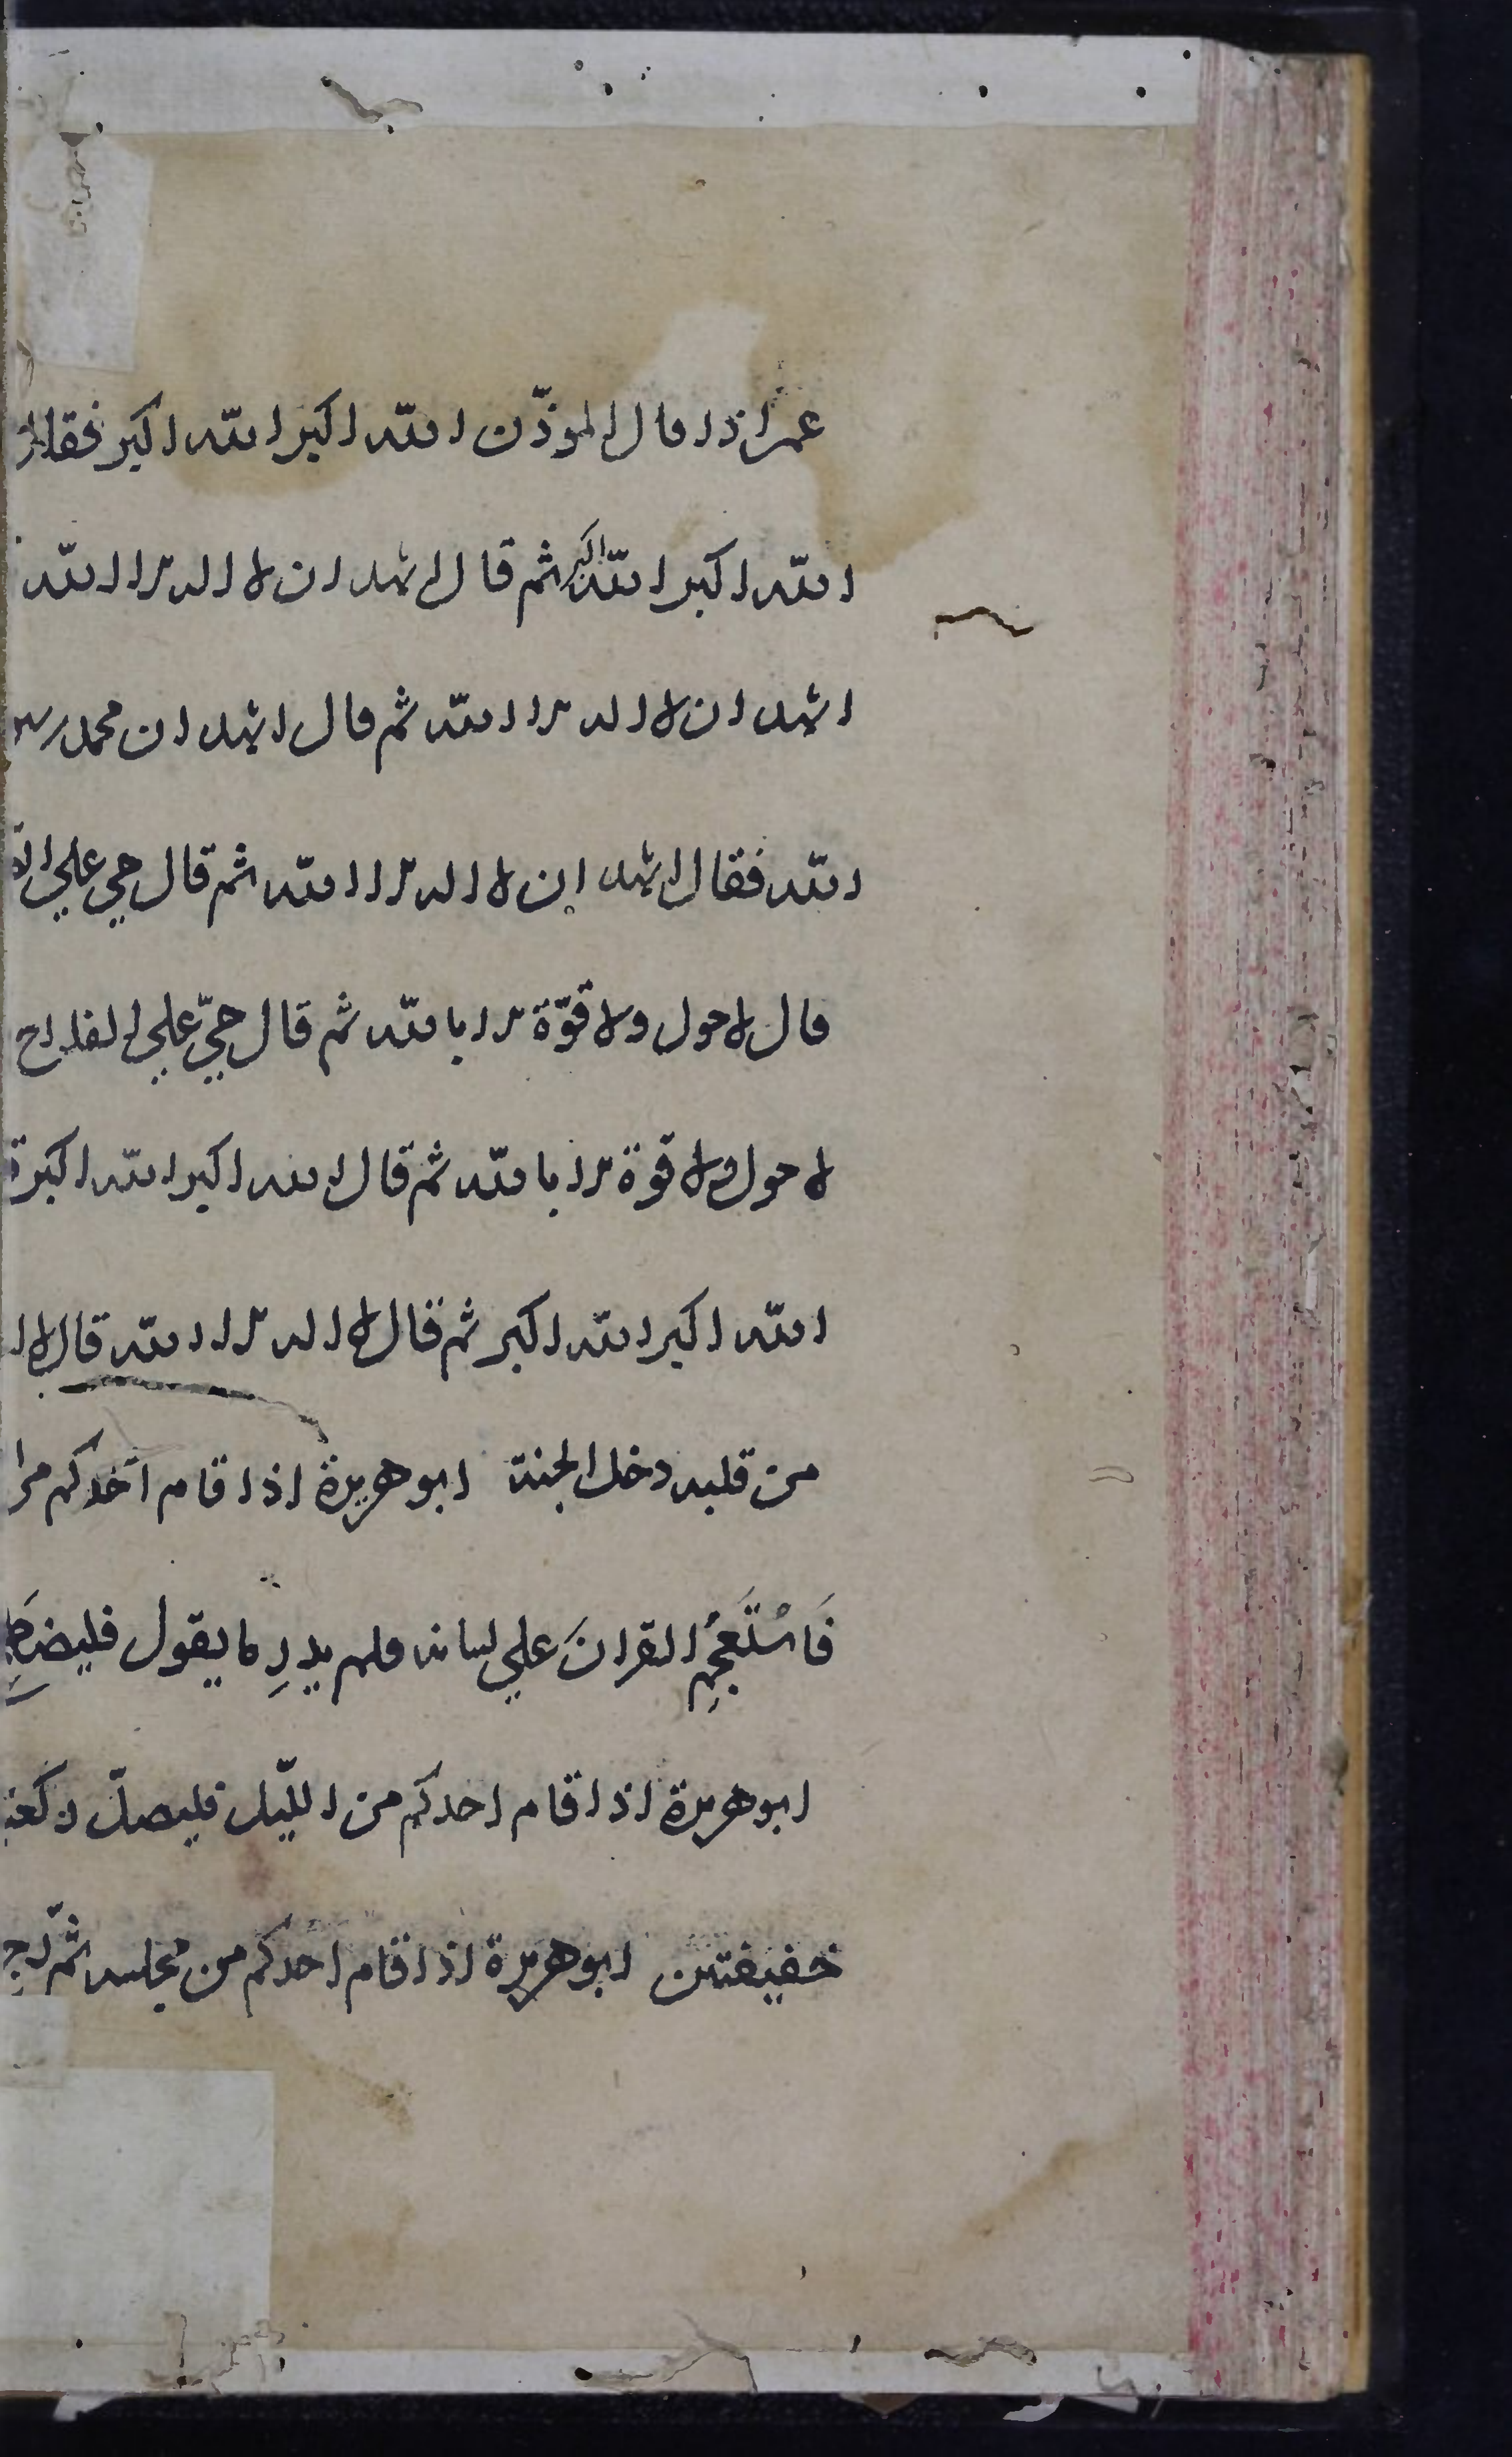 عمر اذا قال الموذّن الله اكبر الله اكبر فقال
الله اكبر الله اكبر ثم قال اشهد ان لا اله الا الله
اشهد ان لا اله الا الله ثم قال اشهد ان محمد رسو
الله فقال اشهد ان لا اله الا الله ثم قال حي علي
قال لا حول ولا قوّة الا بالله ثم قال حيّ علي الفلاح
لا حول ولا قوة الا بالله ثم قال الله اكبر الله اكبر
الله اكبر الله اكبر ثم قال لا اله الا الله قال لا ا
من قلبه دخل الجنة ابو هريرة اذا قام احدكم
فَاسْتَعجَم القرانَ علي لسانه فلم يدرِ ما يقول
ابو هريرة اذا قام احدكم من اللّيل فليصلّ ركعتين
خفيفتين ابو هريرة اذا قام احدكم من مجلسه ثمّ